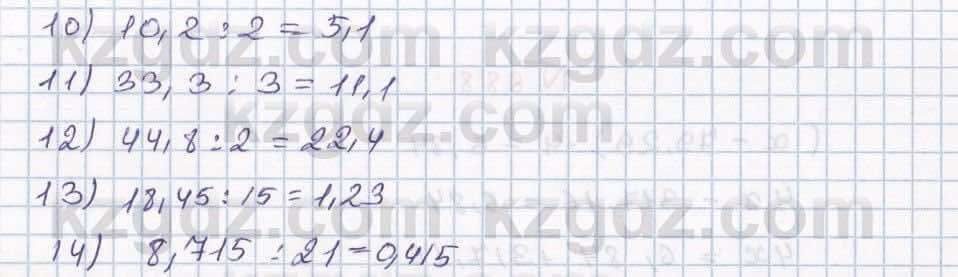 10) 10,2 : 2 = 5,1
11) 33,3 : 3 = 11,1
12) 44,8 : 2 = 22,4
13) 18,45 : 15 = 1,23
14) 8,715 : 21 = 0,415
kzgdz.com
kzgdz.com
kzgdz.com
kzgdz.com
kzgdz.com